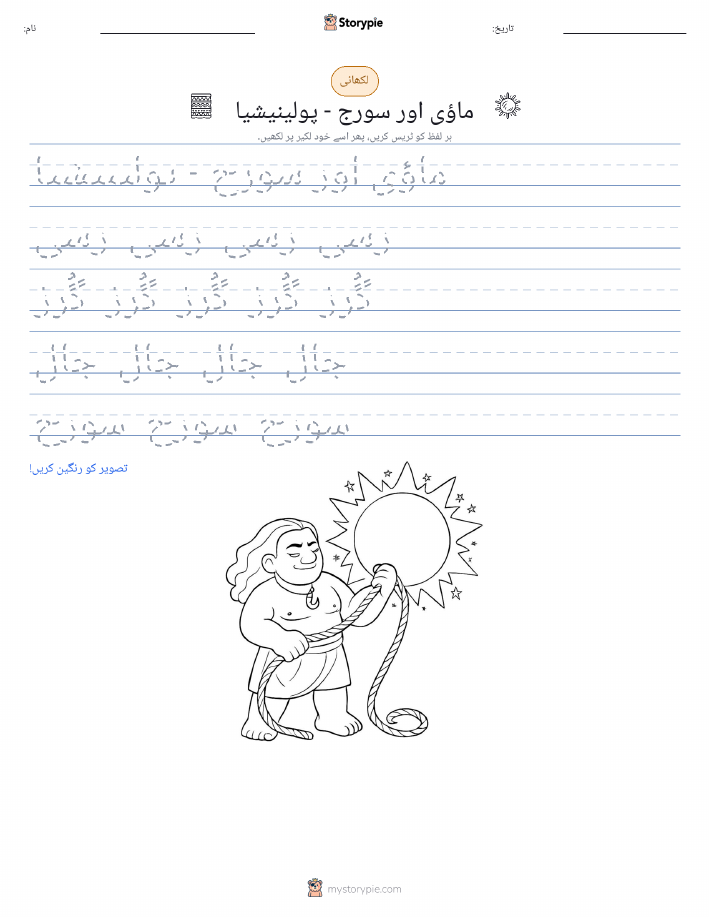 نام:
Storypie
تاریخ:
لکھائی
ماؤی اور سورج - پولینیشیا
ہر لفظ کو ٹریس کریں، پھر اسے خود لکیر پر لکھیں۔
ماؤی اور سورج - پولینیشیا
رسی رسی رسی رسی
جال جال جال جال
سورج سورج سورج
تصویر کو رنگین کریں!
mystorypie.com